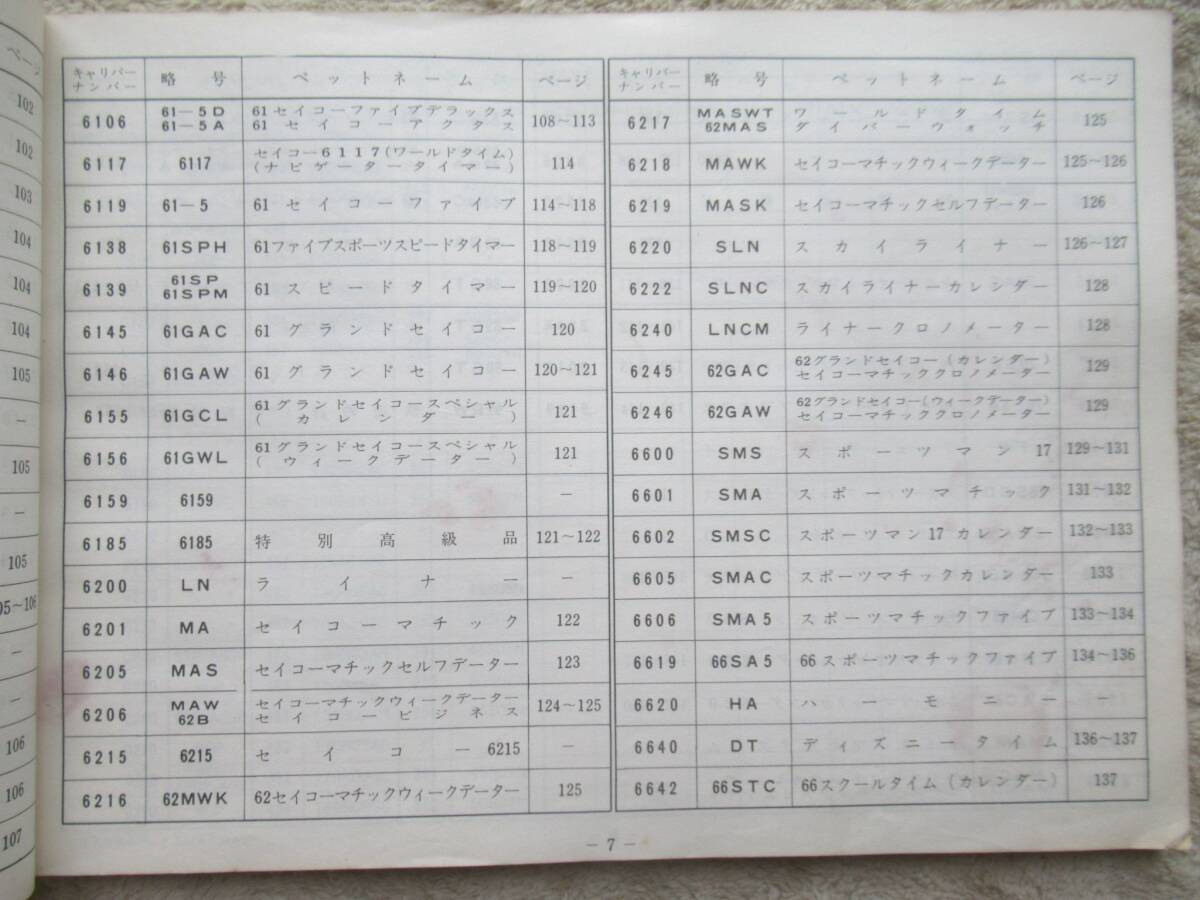 ページ
102
102
103
104
104
104
105
―
105
―
105
05～106
―
―
106
106
107
キャリバーナンバー 略号 ペットネーム ページ
6106 61―5D 61セイコーファイブデラックス 108～113
61―5A 61セイコーアクタス
6117 6117 セイコー6117(ワールドタイム) 114
(ナビゲータータイマー)
6119 61―5 61セイコーファイブ 114～118
6138 61SPH 61ファイブスポーツスピードタイマー 118～119
6139 61SP 61スピードタイマー 119～120
61SPM
6145 61GAC 61グランドセイコー 120
6146 61GAW 61グランドセイコー 120～121
6155 61GCL 61グランドセイコースペシャル 121
(カレンダー)
6156 61GWL 61グランドセイコースペシャル 121
(ウィークデーター)
6159 6159 ―
6185 6185 特別高級品 121～122
6200 LN ライナー ―
6201 MA セイコーマチック 122
6205 MAS セイコーマチックセルフデーター 123
6206 MAW セイコーマチックウィークデーター 124～125
62B セイコービジネス
6215 6215 セイコー6215 ―
6216 62MWK 62セイコーマチックウィークデーター 125
キャリバーナンバー 略号 ペットネーム ページ
6217 MASWT ワールドタイム 125
62MAS ダイバーウォッチ
6218 MAWK セイコーマチックウィークデーター 125～126
6219 MASK セイコーマチックセルフデーター 126
6220 SLN スカイライナー 126～127
6222 SLNC スカイライナーカレンダー 128
6240 LNCM ライナークロノメーター 128
6245 62GAC 62グランドセイコー(カレンダー) 129
セイコーマチッククロノメーター
6246 62GAW 62グランドセイコー(ウィークデーター) 129
セイコーマチッククロノメーター
6600 SMS スポーツマン17 129～131
6601 SMA スポーツマチック 131～132
6602 SMSC スポーツマン17カレンダー 132～133
6605 SMAC スポーツマチックカレンダー 133
6606 SMA5 スポーツマチックファイブ 133～134
6619 66SA5 66スポーツマチックファイブ 134～136
6620 HA ハーモニー ―
6640 DT ディズニータイム 136～137
6642 66STC 66スクールタイム(カレンダー) 137
― 7 ―